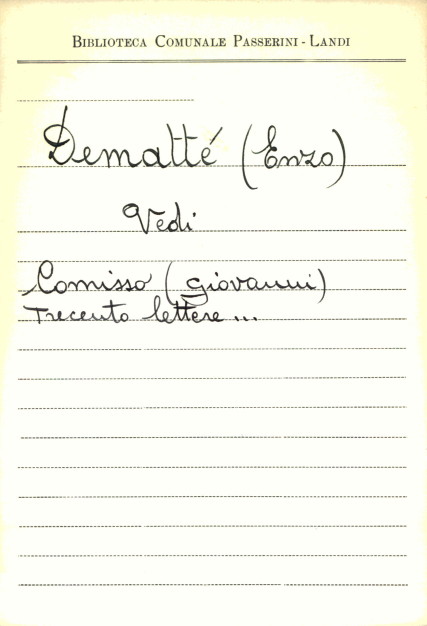 BIBLIOTECA COMUNALE PASSERINI - LANDI
Dematté (Enzo)
Vedi
Comisso (Giovanni)
Trecento lettere ...